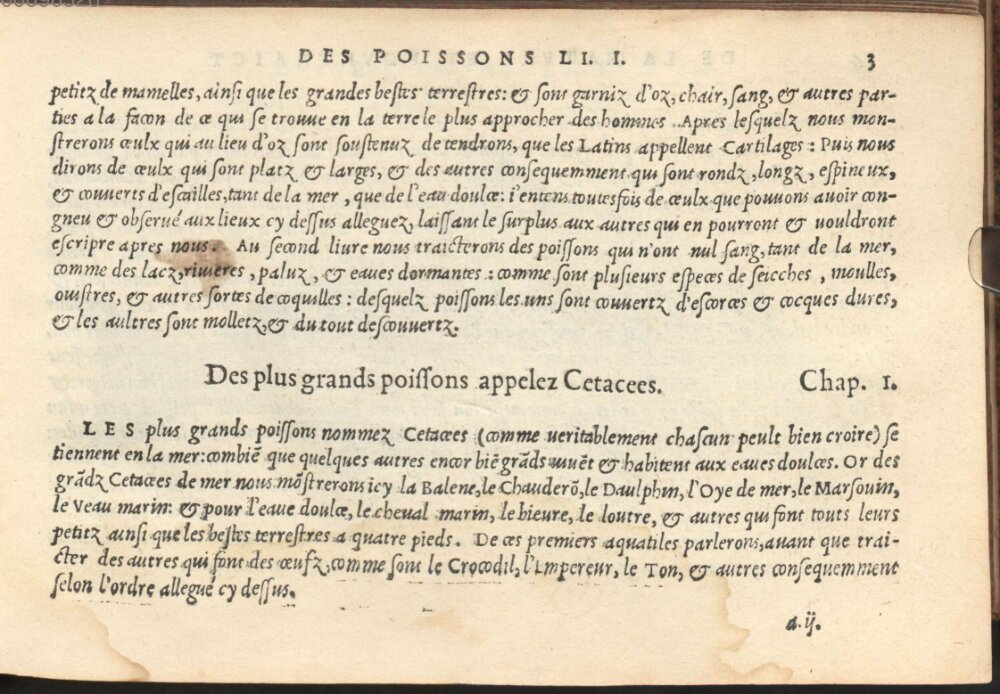 DES POISSONS LI. I. 3
petitz de mamelles, ainsi que les grandes bestes terrestres: & sont garniz d'oz, chair, sang, & autres par-
ties a la facon de ce qui se trouue en la terre le plus approcher des hommes. Apres lesquelz nous mon-
strerons ceulx qui au lieu d'oz sont soustenuz de tendrons, que les Latins appellent Cartilages: Puis nous
dirons de ceulx qui sont platz & larges, & des autres consequemment qui sont rondz, longz, espineux,
& couuerts d'escailles, tant de la mer, que de l'eau doulce: i'entens toutesfois de ceulx que pouuons auoir con-
gneu & obserué aux lieux cy dessus alleguez, laissant le surplus aux autres qui en pourront & vouldront
escripre apres nous. Au second liure nous traicterons des poissons qui n'ont nul sang, tant de la mer,
comme des lacz, riuieres, paluz, & eaues dormantes: comme sont plusieurs especes de seicches, moulles,
ouistres, & autres sortes de coquilles: desquelz poissons les uns sont couuertz d'escorces & cocques dures,
& les aultres sont molletz, & du tout descouuertz.
Des plus grands poissons appelez Cetacees. Chap. I.
LES plus grands poissons nommez Cetacees (comme ueritablement chascun peult bien croire) se
tiennent en la mer: combiē que quelques autres encor biē grāds uiuēt & habitent aux eaues doulces. Or des
grādz Cetacees de mer nous mōstrerons icy la Balene, le Chauderō, le Daulphin, l'Oye de mer, le Marsouin,
le Veau marin: & pour l'eaue doulce, le cheual marin, le bieure, le loutre, & autres qui font touts leurs
petitz ainsi que les bestes terrestres a quatre pieds. De ces premiers aquatiles parlerons, auant que trai-
cter des autres qui font des œufz, comme sont le Crocodil, l'Empereur, le Ton, & autres consequemment
selon l'ordre allegué cy dessus.
a.ij.